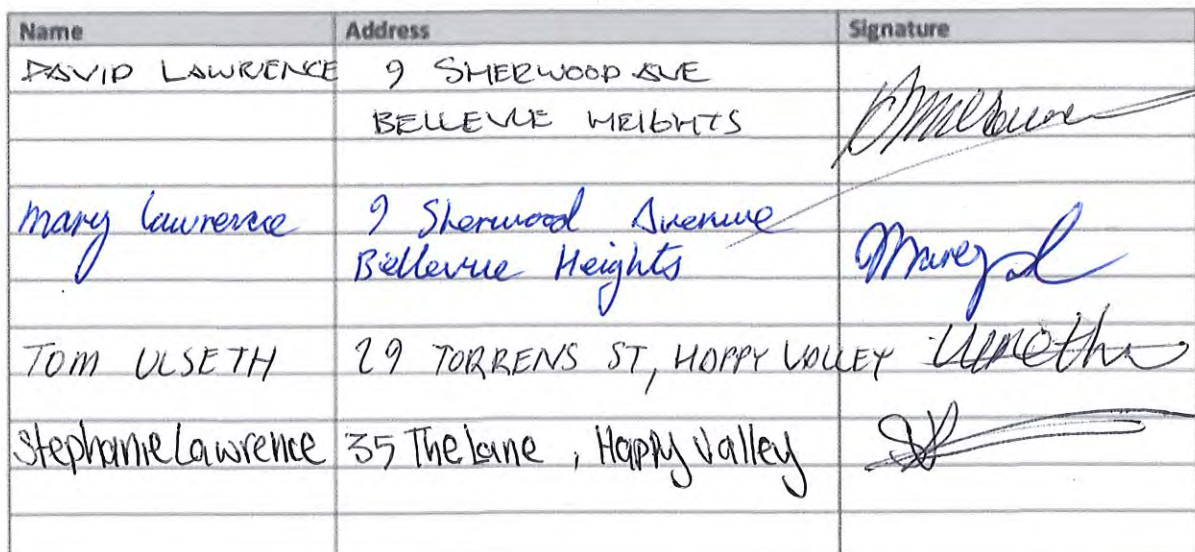 Name Address Signature
DAVID LAWRENCE 9 SHERWOOD AVE
BELLEVUE HEIGHTS
Mary Lawrence 9 Sherwood Avenue
Bellevue Heights
TOM ULSETH 29 TORRENS ST, HAPPY VALLEY
Stephanie Lawrence 35 The Lane, Happy Valley